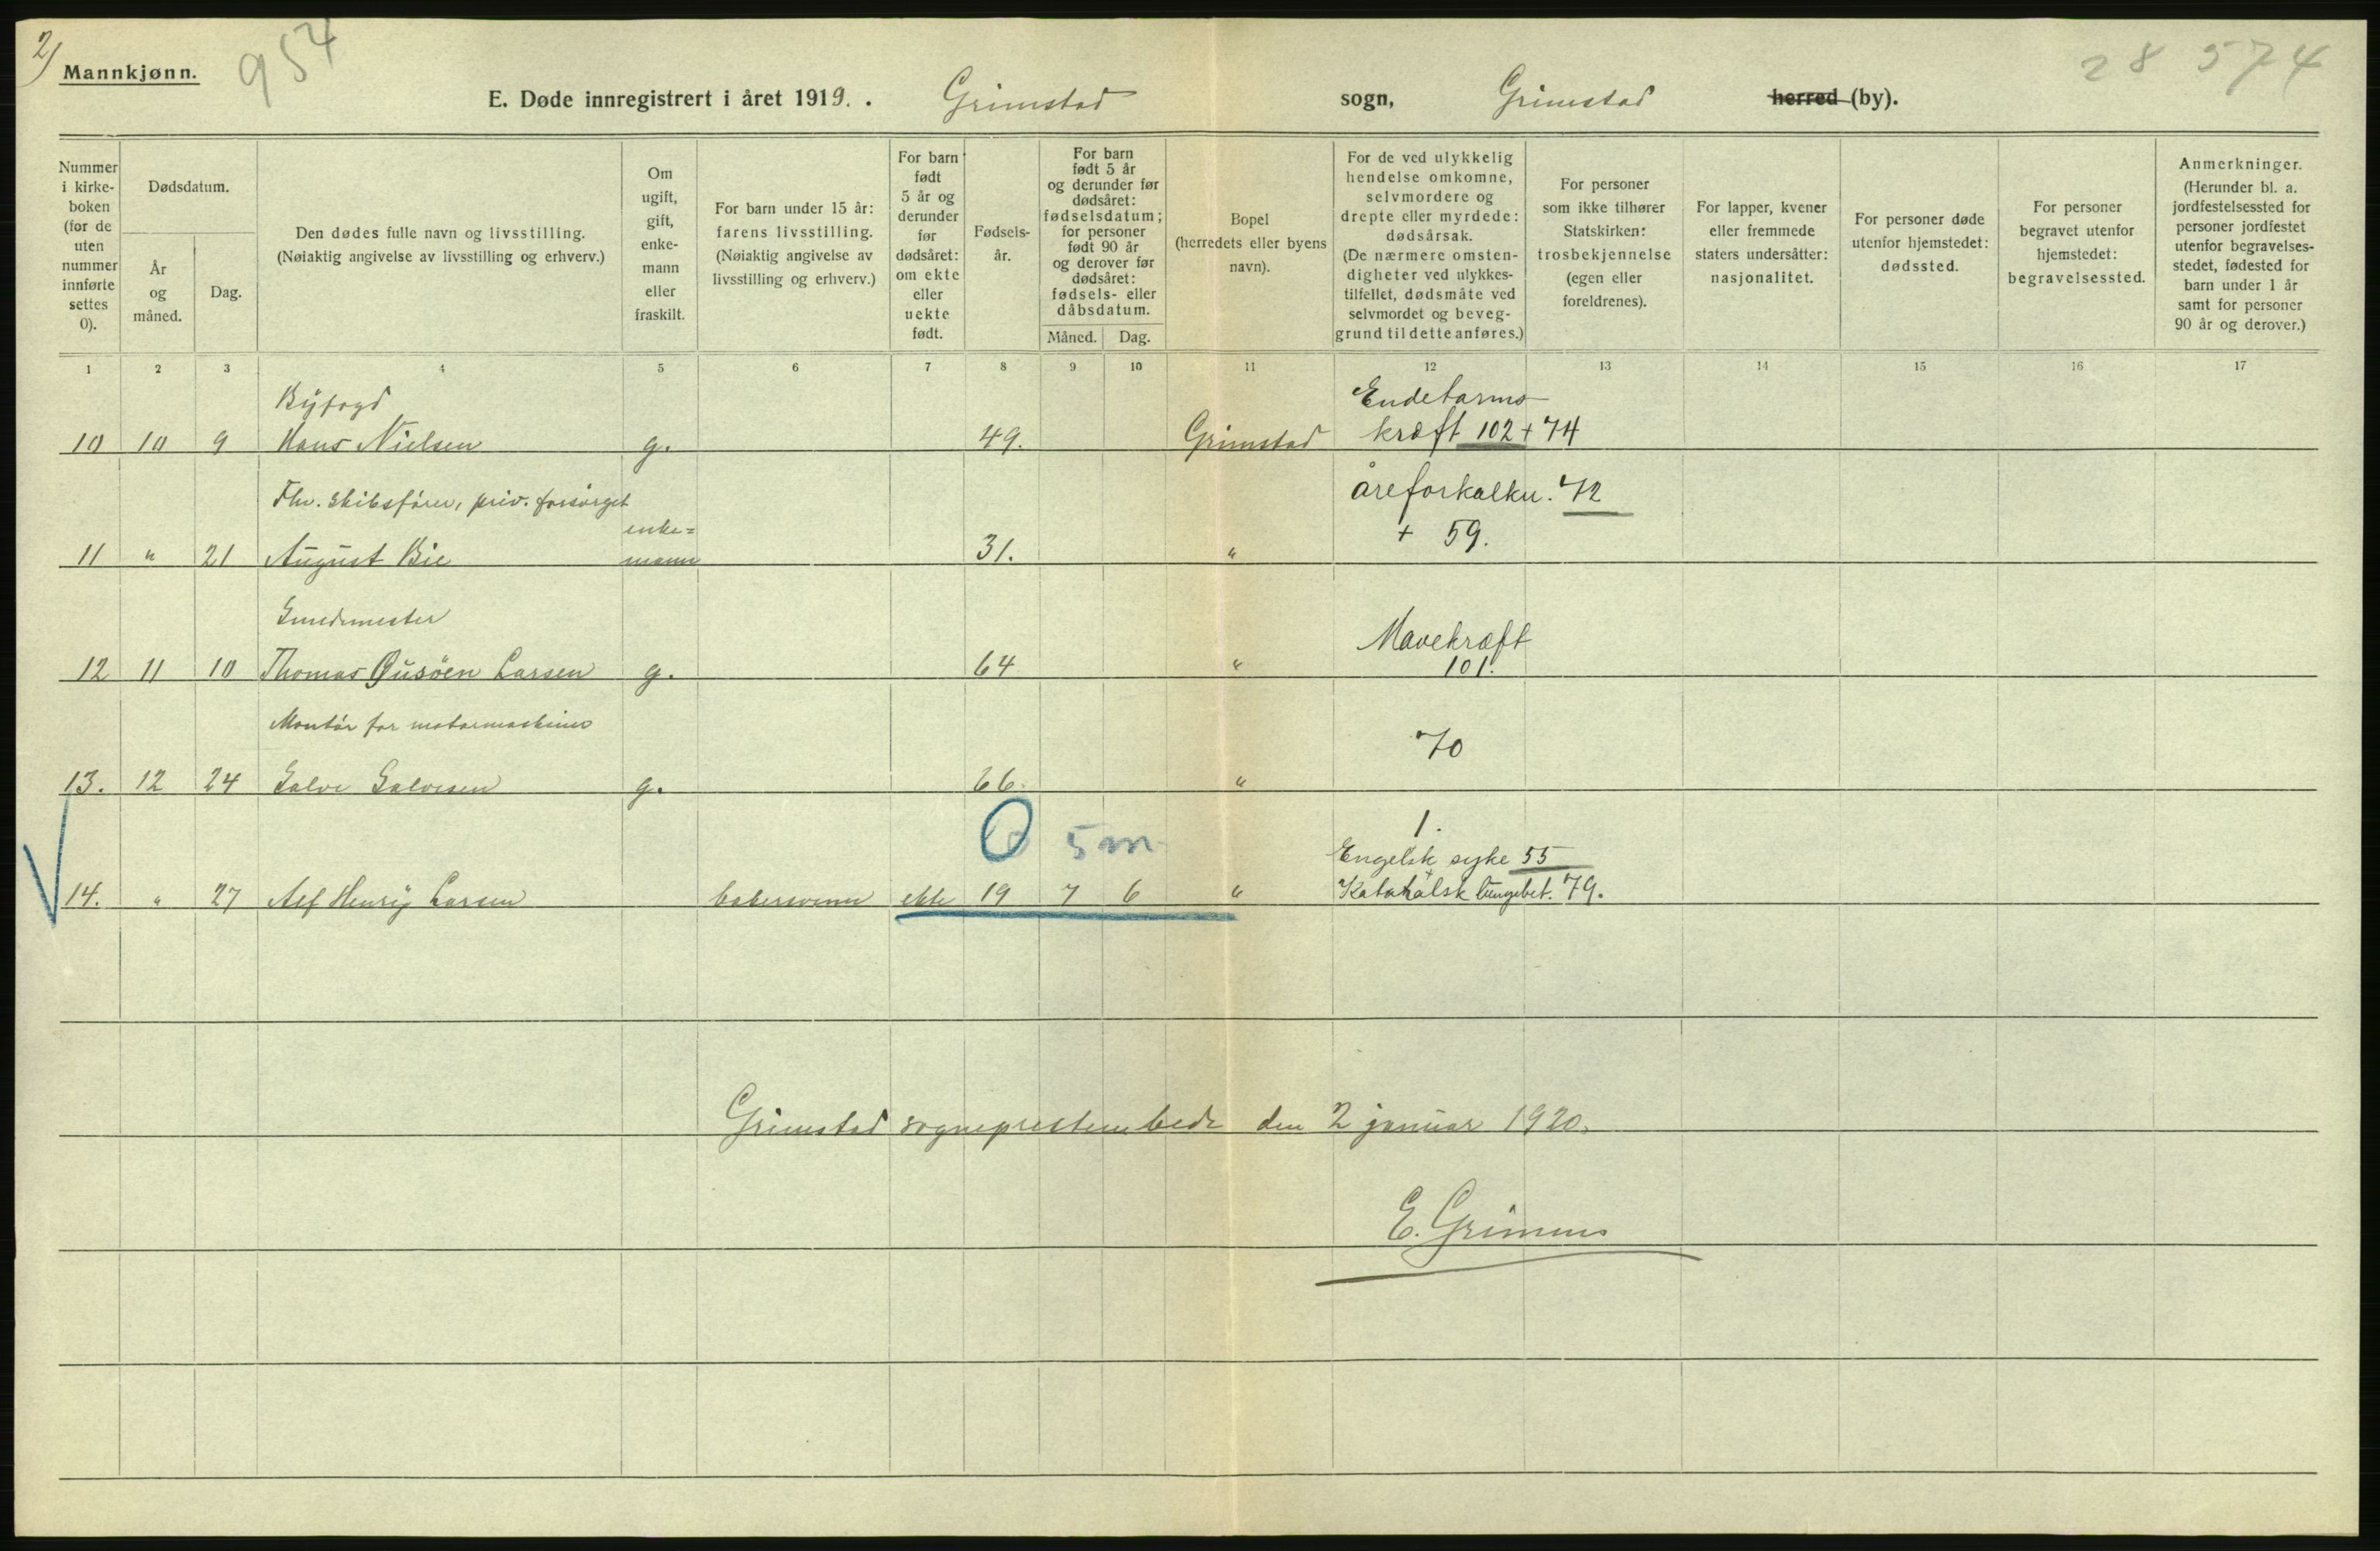 2)
Mannkjønn.
954
28 574
E. Døde innregistrert i året 1919. . Grimstad sogn, Grimstad herred (by).
Nummer
i kirke-
boken
(for de
uten
nummer
innførte
settes
0).
Dødsdatum.
År
og
måned.
Dag.
Den dødes fulle navn og livsstilling.
(Nøiaktig angivelse av livsstilling og erhverv.)
Om
ugift,
gift,
enke-
mann
eller
fraskilt.
For barn under 15 år:
farens livsstilling.
(Nøiaktig angivelse av
livsstilling og erhverv.)
For barn
født
5 år og
derunder
før
dødsåret:
om ekte
eller
uekte
født.
Fødsels-
år.
For barn
født 5 år
og derunder før
dødsåret:
fødselsdatum;
for personer
født 90 år
og derover før
dødsåret:
fødsels- eller
dåbsdatum.
Måned. Dag.
Bopel
(herredets eller byens
navn).
For de ved ulykkelig
hendelse omkomne,
selvmordere og
drepte eller myrdede:
dødsårsak.
(De nærmere omsten-
digheter ved ulykkes-
tilfellet, dødsmåte ved
selvmordet og beveg-
grund til dette anføres.)
For personer
som ikke tilhører
Statskirken:
trosbekjennelse
(egen eller
foreldrenes).
For lapper, kvener
eller fremmede
staters undersåtter:
nasjonalitet.
For personer døde
utenfor hjemstedet:
dødssted.
For personer
begravet utenfor
hjemstedet:
begravelsessted.
Anmerkninger.
(Herunder bl. a.
jordfestelsessted for
personer jordfestet
utenfor begravelses-
stedet, fødested for
barn under 1 år
samt for personer
90 år og derover.)
1 2 3 4 5 6 7 8 9 10 11 12 13 14 15 16 17
Byfogd
Endetarms-
10 10 9 Hans Nielsen g. 49. Grimstad kræft 102 + 74
Fhv. skibsfører, priv. forsørget
åreforkalkn. 72
enke=
+ 59.
11 " 21 August Bie mann 31. "
Smedmester
Mavekræft
12 11 10 Thomas Gusöen Larsen g. 64 " 101.
Montör for motormaskiner
70
13. 12 24 Salve Salvesen g. 66. "
0 5 m
1.
Engelsk syke 55
+
14. " 27 Alf Henry Larsen bakersvenn ekte 19 7 6 " Katarhalsk lungebet. 79.
Grimstad sogneprestembede den 2 januar 1920.
E. Grimnes